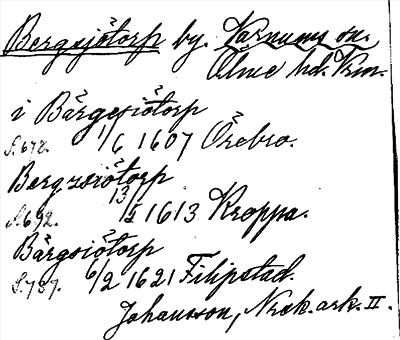 Bergsjötorp by. Varnums sn.
Ölme hd. Vrm.
i Bärgesiötorp
S. 678. 1/6 1607 Örebro.
Bergzsiötorp
S. 692. 13/5 1613 Kroppa.
Bärgsiötorp
S. 737. 6/2 1621 Filipstad.
Johansson, Nrek. ark. II.